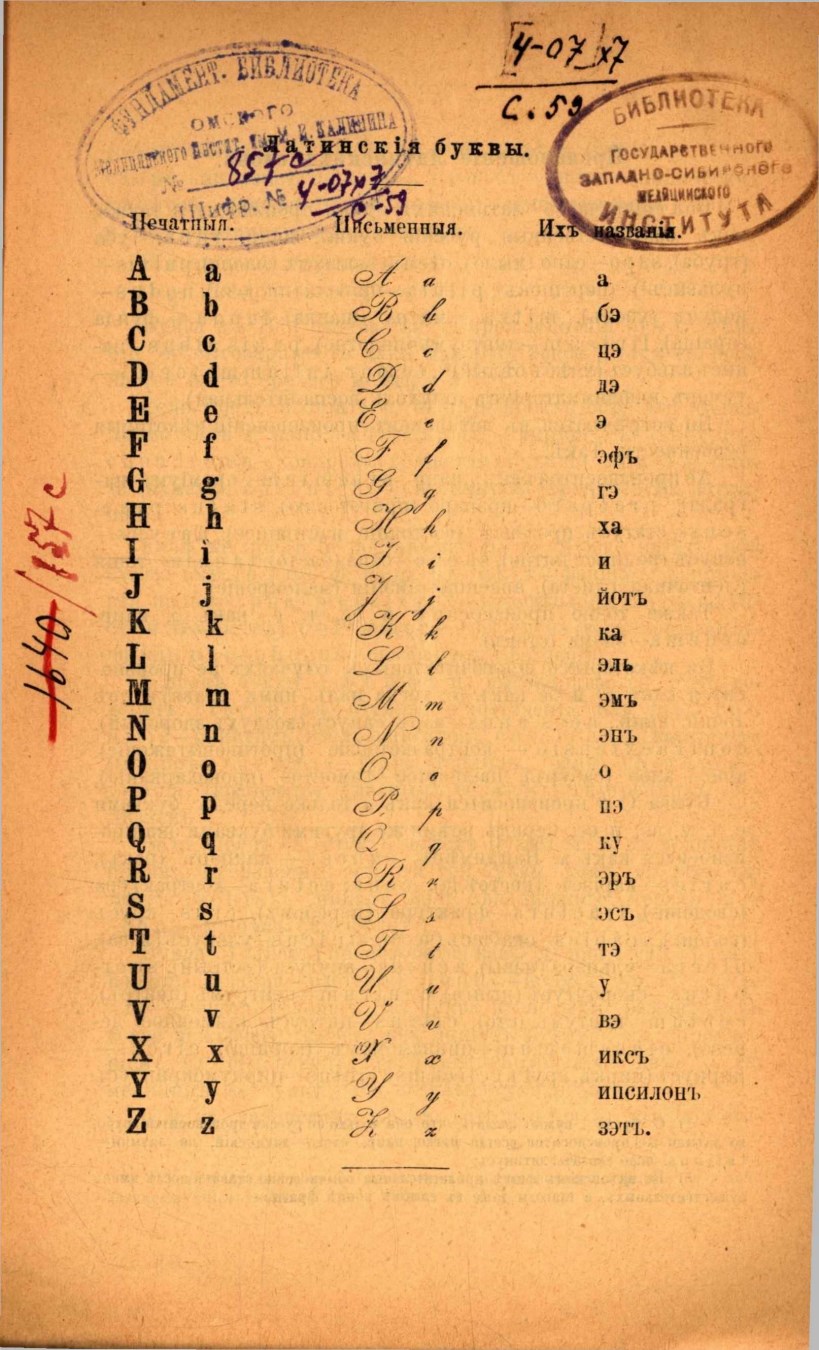 [4-07 x7
С. 59
ФУНДАМЕНТ. БИБЛИОТЕКА
ОМСКОГО
КАЛИНИНА
№ 857с
Шифр. № 4-07x7
С-59
БИБЛИОТЕКА
ГОСУДАРСТВЕННОГО
ЗАПАДНО-СИБИРСКОГО
МЕДИЦИНСКОГО
ИНСТИТУТА
Латинскія буквы.
Печатныя. Письменныя. Ихъ названія.
A a A a а
B b B b бэ
C c C c цэ
D d D d дэ
E e E e э
F f F f эфъ
G g G g гэ
H h H h ха
I i I i и
J j J j йотъ
K k K k ка
L l L l эль
M m M m эмъ
N n N n энъ
O o O o о
P p P p пэ
Q q Q q ку
R r R r эръ
S s S s эсъ
T t T t тэ
U u U u у
V v V v вэ
X x X x иксъ
Y y Y y ипсилонъ
Z z Z z зэтъ.
1640/857с